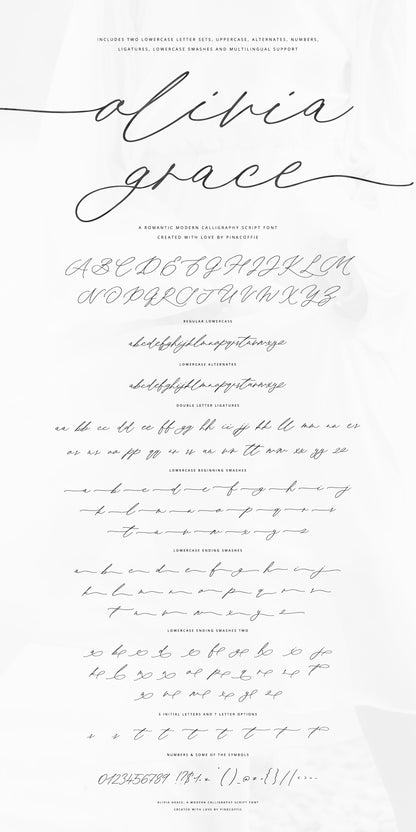 INCLUDES TWO LOWERCASE LETTER SETS, UPPERCASE, ALTERNATES, NUMBERS,
LIGATURES, LOWERCASE SWASHES AND MULTILINGUAL SUPPORT
olivia
grace
A ROMANTIC MODERN CALLIGRAPHY SCRIPT FONT
CREATED WITH LOVE BY PINKCOFFIE
A B C D E F G H I J K L M
N O P Q R S T U V W X Y Z
REGULAR LOWERCASE
abcdefghijklmnopqrstuvwxyz
LOWERCASE ALTERNATES
abcdefghijklmnopqrstuvwxyz
DOUBLE LETTER LIGATURES
aa bb cc dd ee ff gg hh ii jj kk ll mm nn
LOWERCASE BEGINNING SWASHES
a b c d e f g h i j
k l m n o p q r s
t u v w x y z
LOWERCASE ENDING SWASHES
a b c d e f g h i j
k l m n o p q r s
t u v w x y z
LOWERCASE ENDING SWASHES TWO
S INITIAL LETTERS AND T LETTER OPTIONS
s s t t t t t t t
NUMBERS & SOME OF THE SYMBOLS
0123456789
OLIVIA GRACE, A MODERN CALLIGRAPHY SCRIPT FONT
CREATED WITH LOVE BY PINKCOFFIE